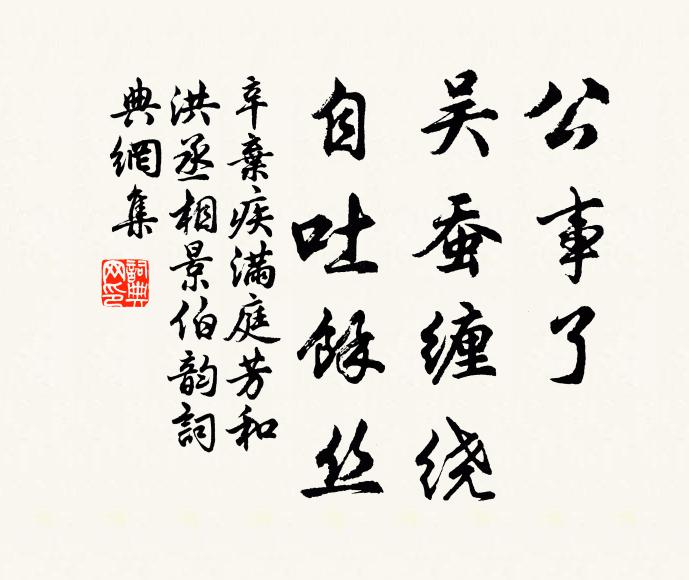 公事了
吴蚕缠绕
自吐馀丝
辛棄疾满庭芳和
洪丞相景伯韵詞
典網集
詞典
网印